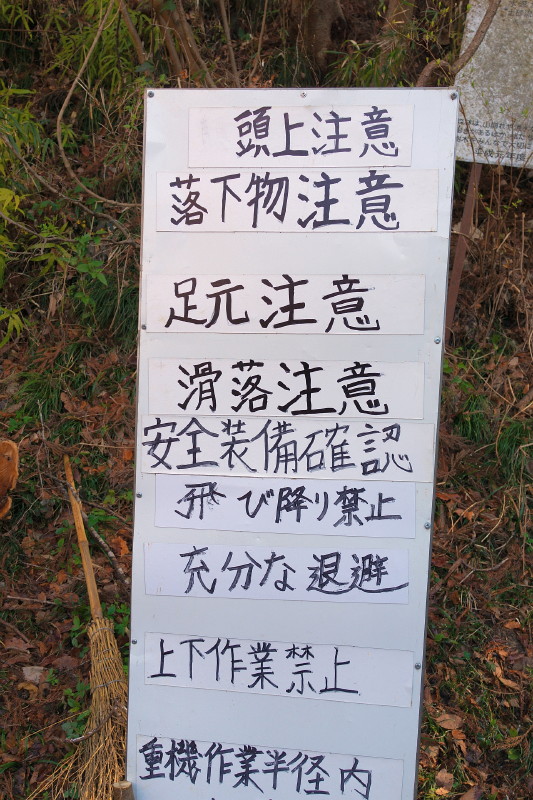 頭上注意
落下物注意
足元注意
滑落注意
安全装備確認
飛び降り禁止
充分な退避
上下作業禁止
重機作業半径内